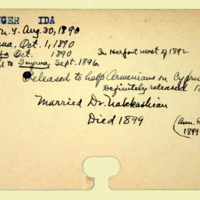 NGER IDA
N.Y. Aug. 30, 1890
Oct. 1, 1890
Oct. 1890 In Harpoot most of 1892
to Smyrna, Sept. 1896
Released to help Armenians on Cypru
Definitely released 1
Married Dr. Nakkashian
Died 1899
1899